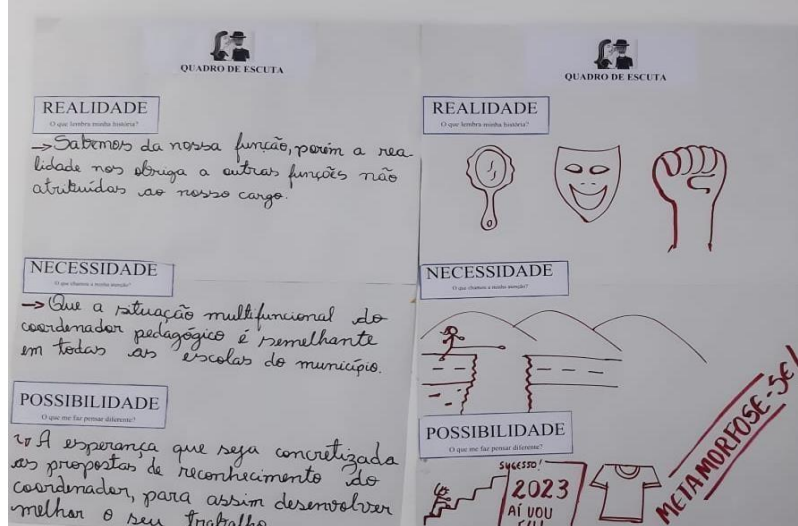 QUADRO DE ESCUTA
REALIDADE
O que lembra minha história?
→ Sabemos da nossa função, porém a rea-
lidade nos obriga a outras funções não
atribuídas ao nosso cargo.
NECESSIDADE
O que chamou a minha atenção?
→ Que a situação multifuncional do
coordenador pedagógico é semelhante
em todas as escolas do município.
POSSIBILIDADE
O que me faz pensar diferente?
A esperança que seja concretizada
as propostas de reconhecimento do
coordenador, para assim desenvolver
melhor o seu trabalho
QUADRO DE ESCUTA
REALIDADE
O que lembra minha história?
NECESSIDADE
O que chamou a minha atenção?
POSSIBILIDADE
O que me faz pensar diferente?
SUCESSO!
2023
AÍ VOU
EU!
METAMORFOSE-SE!